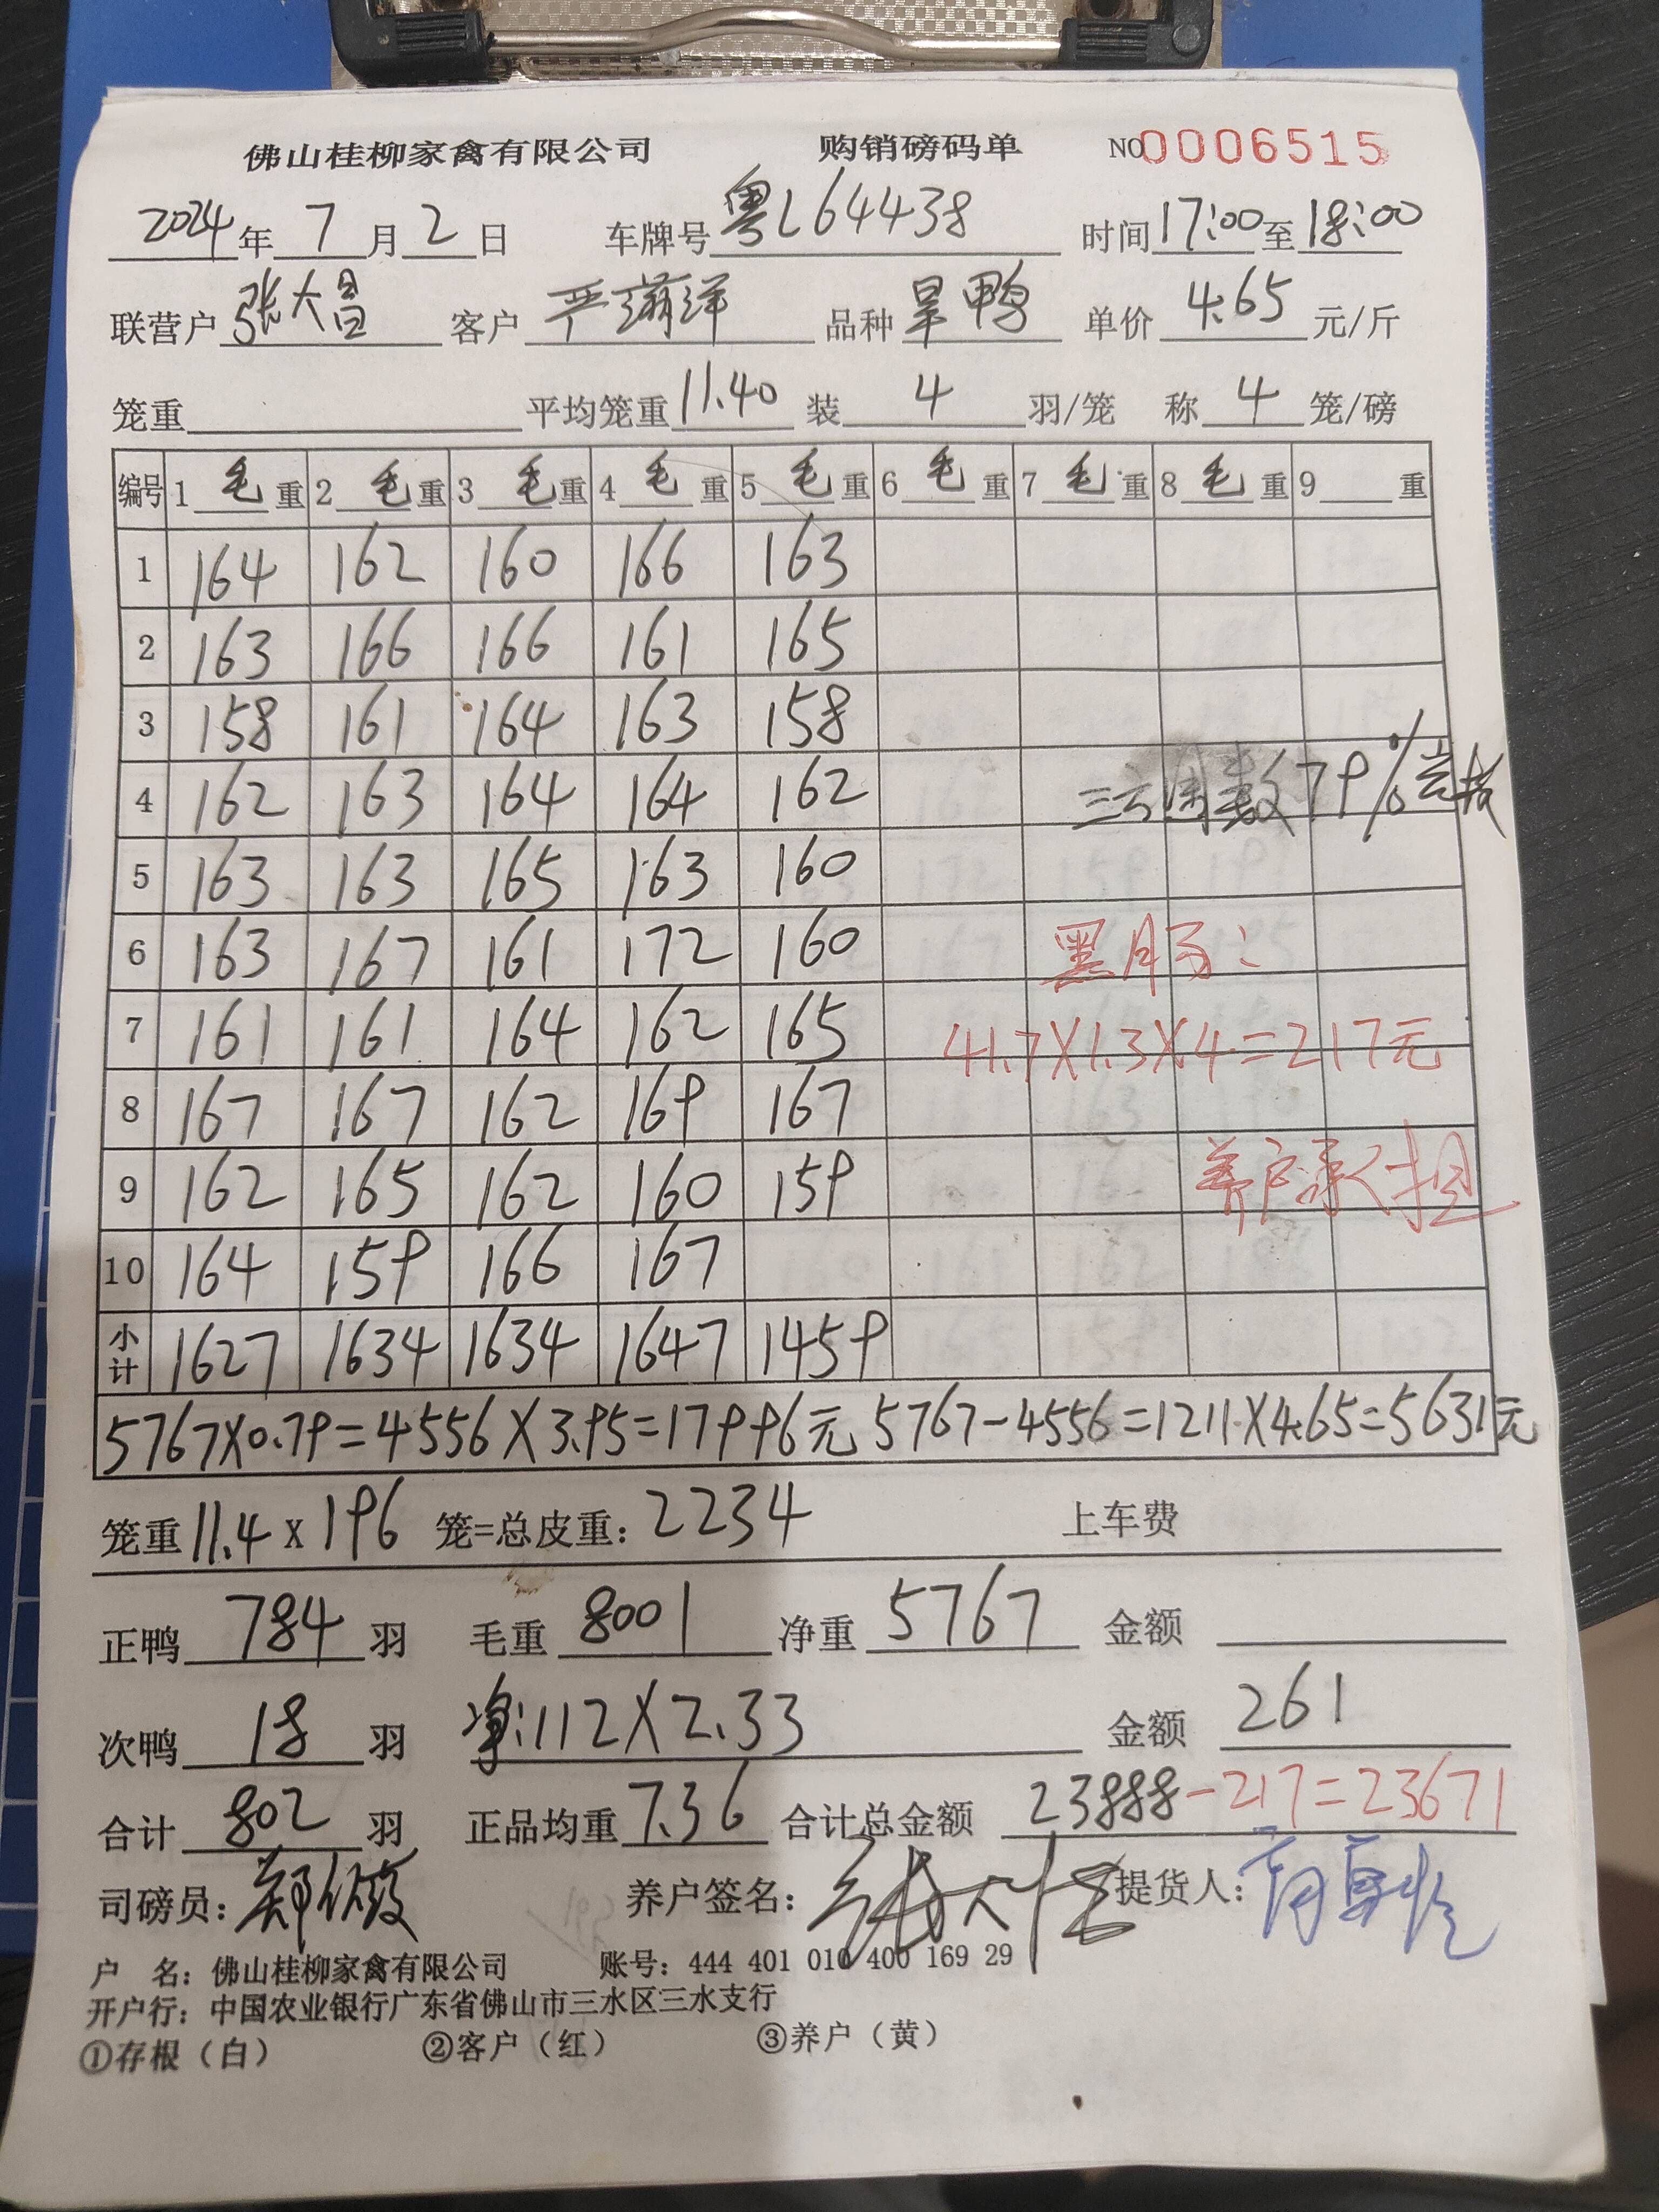 佛山桂柳家禽有限公司 购销磅码单 NO 0006515
2024年 7月 2日 车牌号 粤L64438 时间 17:00 至 18:00
联营户 张大昌 客户 严 洋 品种 旱鸭 单价 4.65 元/斤
笼重 平均笼重 11.40 装 4 羽/笼 称 4 笼/磅
编号 1 毛重 2 毛重 3 毛重 4 毛重 5 毛重 6 毛重 7 毛重 8 毛重 9 重
1 164 162 160 166 163
2 163 166 166 161 165
3 158 161 164 163 158
4 162 163 164 164 162 数79%
5 163 163 165 163 160
6 163 167 161 172 160 黑
7 161 161 164 162 165 41.7X1.3X4=217元
8 167 167 162 169 167
9 162 165 162 160 159 养户承担
10 164 159 166 167
小计 1627 1634 1634 1647 1459
5767X0.79=4556X3.95=17996元 5767-4556=1211X4.65=5631元
笼重 11.4 x 196 笼=总皮重: 2234 上车费
正鸭 784 羽 毛重 8001 净重 5767 金额
次鸭 18 羽 净:112X2.33 金额 261
合计 802 羽 正品均重 7.36 合计总金额 23888-217=23671
司磅员: 郑 养户签名: 提货人:
户 名: 佛山桂柳家禽有限公司 账号: 444 401 010 400 169 29
开户行: 中国农业银行广东省佛山市三水区三水支行
①存根(白) ②客户(红) ③养户(黄)